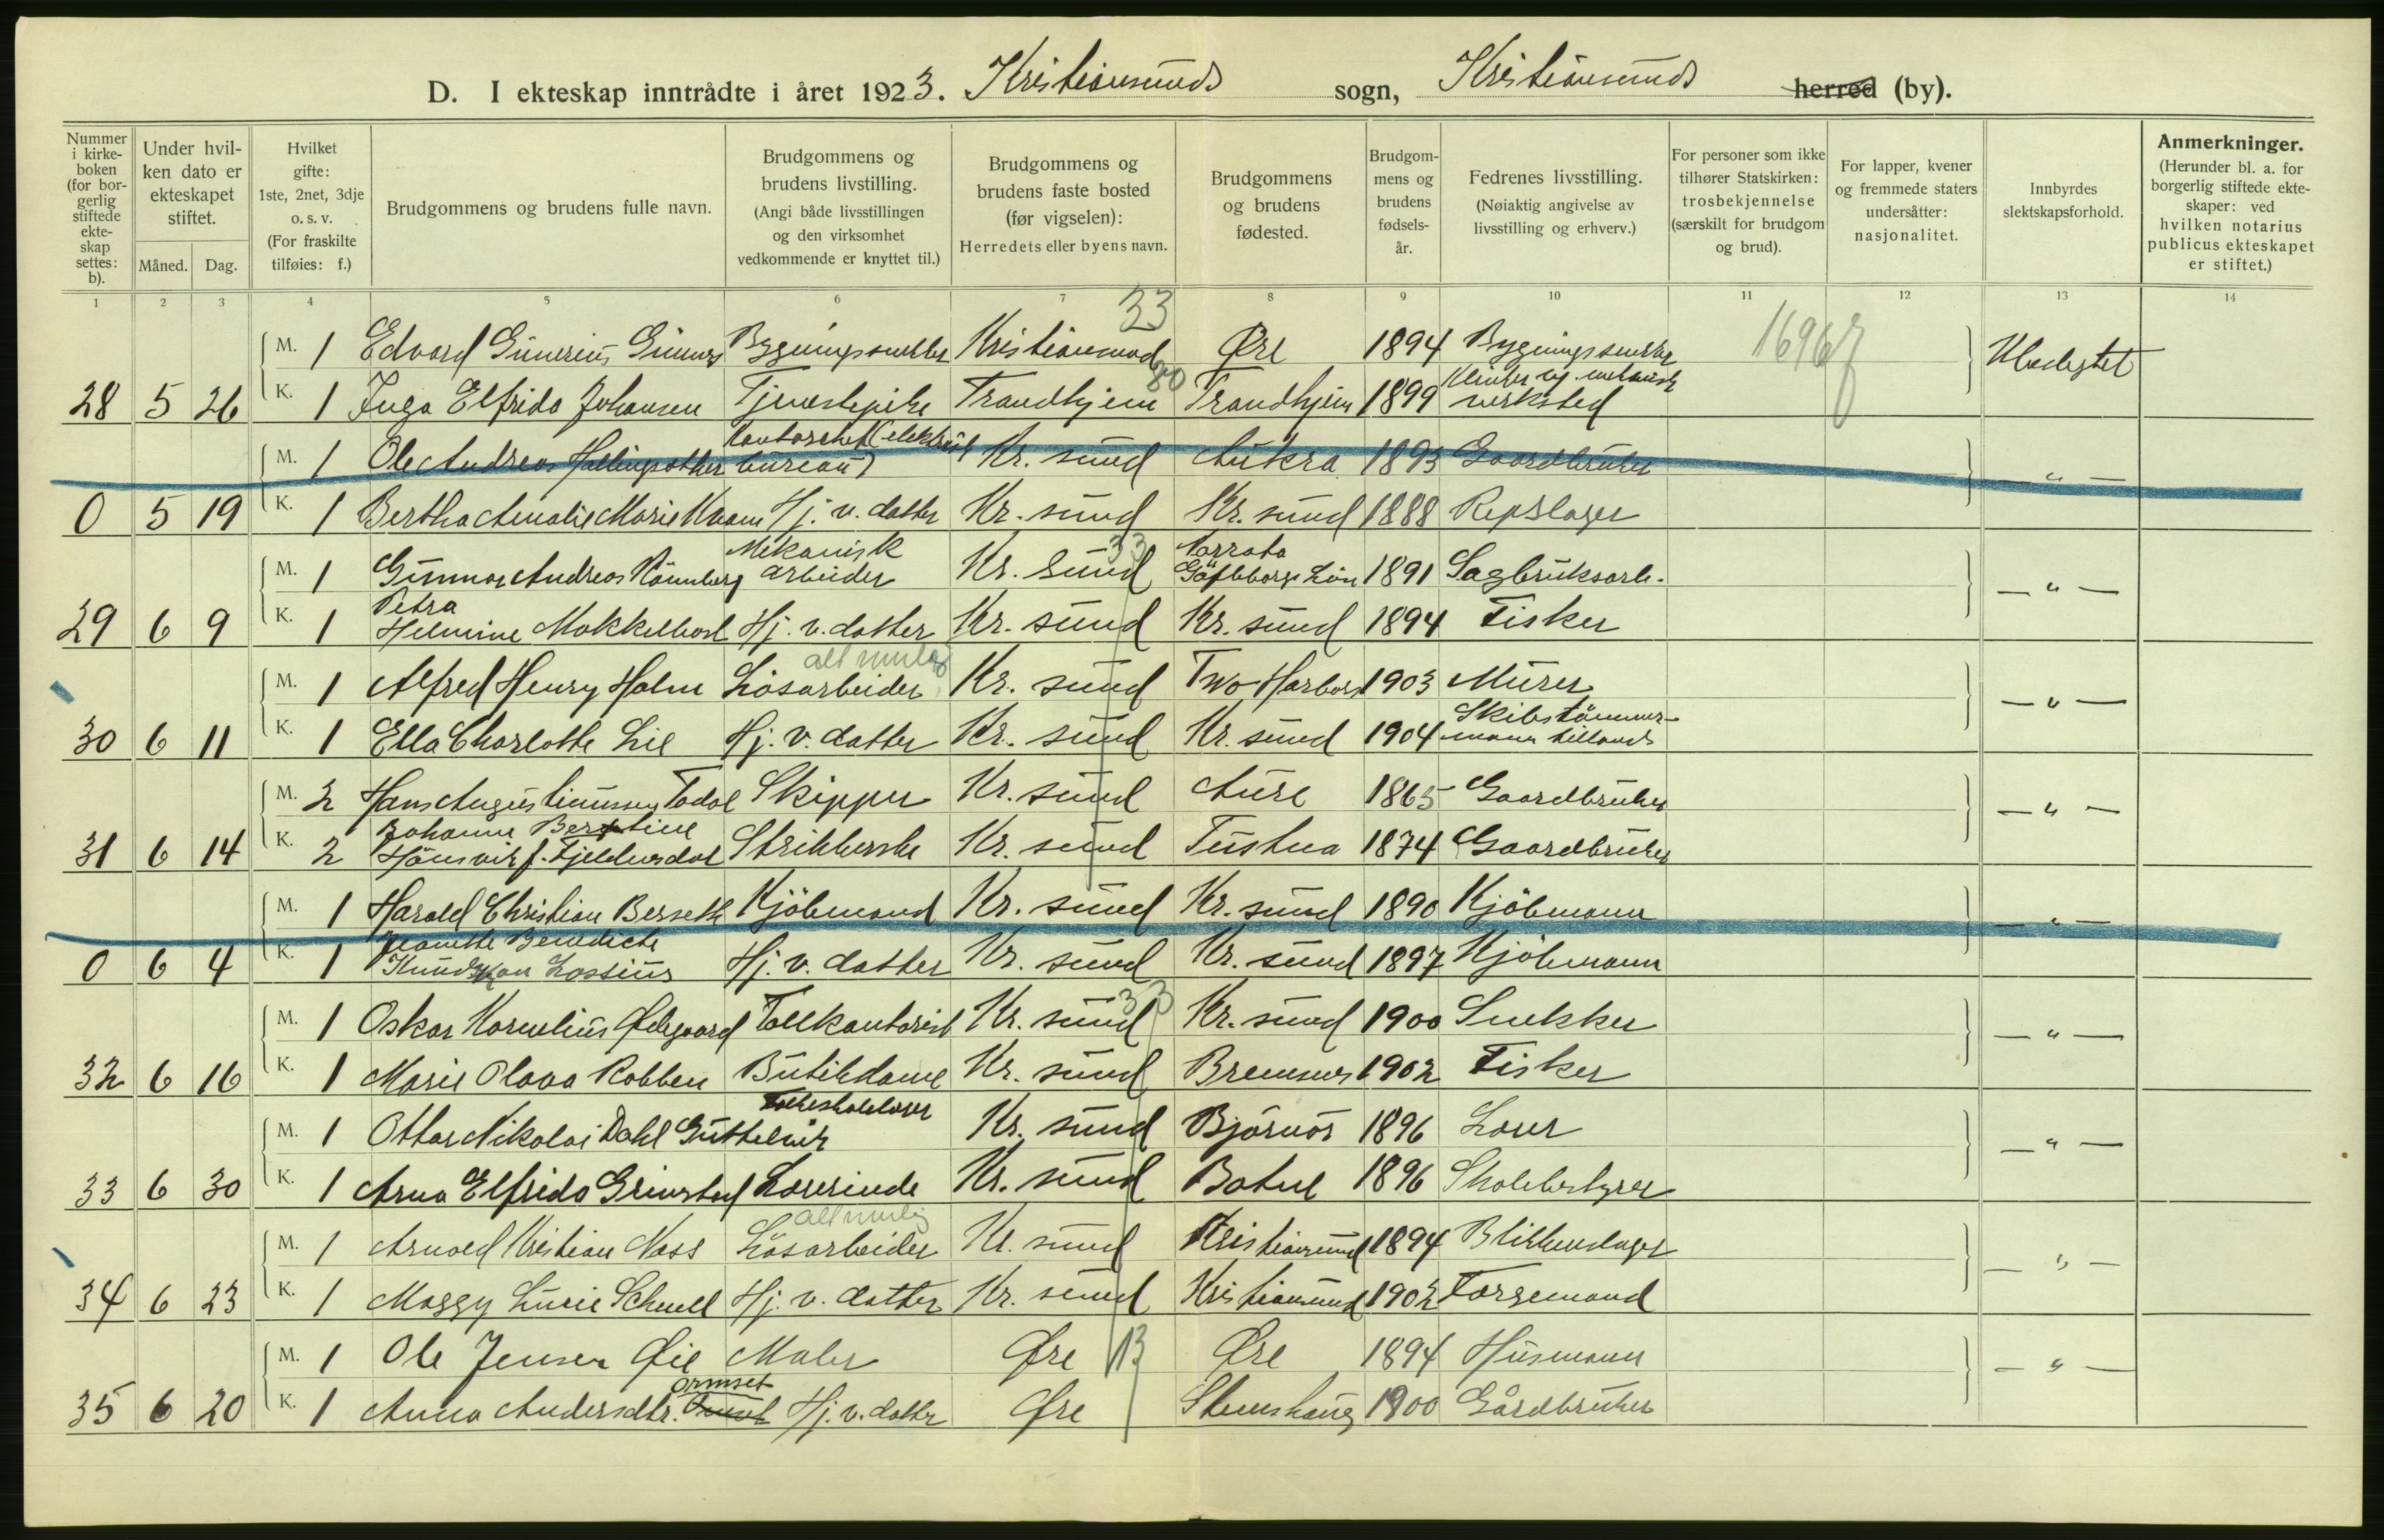 D. I ekteskap inntrådte i året 1923. Kristiansunds sogn, Kristiansunds herred (by).
Nummer i kirkeboken (for borgerlig stiftede ekteskap settes: b).
Under hvilken dato er ekteskapet stiftet.
Måned. Dag.
Hvilket gifte: 1ste, 2net, 3dje o. s. v. (For fraskilte tilføies: f.)
Brudgommens og brudens fulle navn.
Brudgommens og brudens livstilling. (Angi både livsstillingen og den virksomhet vedkommende er knyttet til.)
Brudgommens og brudens faste bosted (før vigselen): Herredets eller byens navn.
Brudgommens og brudens fødested.
Brudgommens og brudens fødselsår.
Fedrenes livsstilling. (Nøiaktig angivelse av livsstilling og erhverv.)
For personer som ikke tilhører Statskirken: trosbekjennelse (særskilt for brudgom og brud).
For lapper, kvener og fremmede staters undersåtter: nasjonalitet.
Innbyrdes slektskapsforhold.
Anmerkninger. (Herunder bl. a. for borgerlig stiftede ekteskaper: ved hvilken notarius publicus ekteskapet er stiftet.)
1 2 3 4 5 6 7 8 9 10 11 12 13 14
33
M. 1 Edvard Gunerius Gunnes Bygningssnekker Kristiansund Øre 1894 Bygningssnekker Ubeslegtet
80
28 5 26 K. 1 Inga Elfrida Johansen Tjenestepike Trondhjem Trondhjem 1899 Klinker ug. mekanisk verksted
M. 1 Ole Andreas Hallingsæther Kontorchef (elektrisk bureau) Kr. sund Aukra 1893 Gaardbruker — " —
0 5 19 K. 1 Bertha Amalie Marie Kvam Hj. v. datter Kr. sund Kr. sund 1888 Repslager
33
M. 1 Gunnar Andreas Rönnberg Mekanisk arbeider Kr. sund Norrala Gäfleborgs Län 1891 Sagbruksarb. — " —
29 6 9 K. 1 Petra Helmine Mokkelbost Hj. v. datter Kr. sund Kr. sund 1894 Fisker
alt mulig
M. 1 Alfred Henry Holm Løsarbeider Kr. sund Two Harbors 1903 Murer — " —
30 6 11 K. 1 Ella Charlotte Lie Hj. v. datter Kr. sund Kr. sund 1904 Skibstømmermann tillands
M. 2 Hans Augustinussen Todal Skipper Kr. sund Aure 1865 Gaardbruker — " —
31 6 14 K. 2 Johanne Berntine Hönsvik f. Fjeldnesdal Strikkerske Kr. sund Tustna 1874 Gaardbruker
M. 1 Harald Christian Berseth Kjöbmand Kr. sund Kr. sund 1890 Kjöbmann — " —
0 6 4 K. 1 Jeanette Benedicte Knudtzon Lossius Hj. v. datter Kr. sund Kr. sund 1897 Kjöbmann
33
M. 1 Oskar Kornelius Ødegaard Tollkontorist Kr. sund Kr. sund 1900 Snekker — " —
32 6 16 K. 1 Marie Olava Robben Butikdame Kr. sund Bremsnes 1902 Fisker
M. 1 Ottar Nikolai Dahl Guttelvik Folkeskolelærer Kr. sund Björnör 1896 Lærer — " —
33 6 30 K. 1 Arna Elfrida Grimstad Lærerinde Kr. sund Batne 1896 Skolebestyrer
alt mulig
M. 1 Arnold Kristian Næss Løsarbeider Kr. sund Kristiansund 1894 Blikkenslager — " —
34 6 23 K. 1 Maggy Lucie Schnell Hj. v. datter Kr. sund Kristiansund 1902 Færgemand
M. 1 Ole Jensen Øie Maler Øre 13 Øre 1894 Husmann — " —
35 6 20 K. 1 Anna Andersdtr. Ormset Hj. v. datter Øre Stemshaug 1900 Gårdbruker